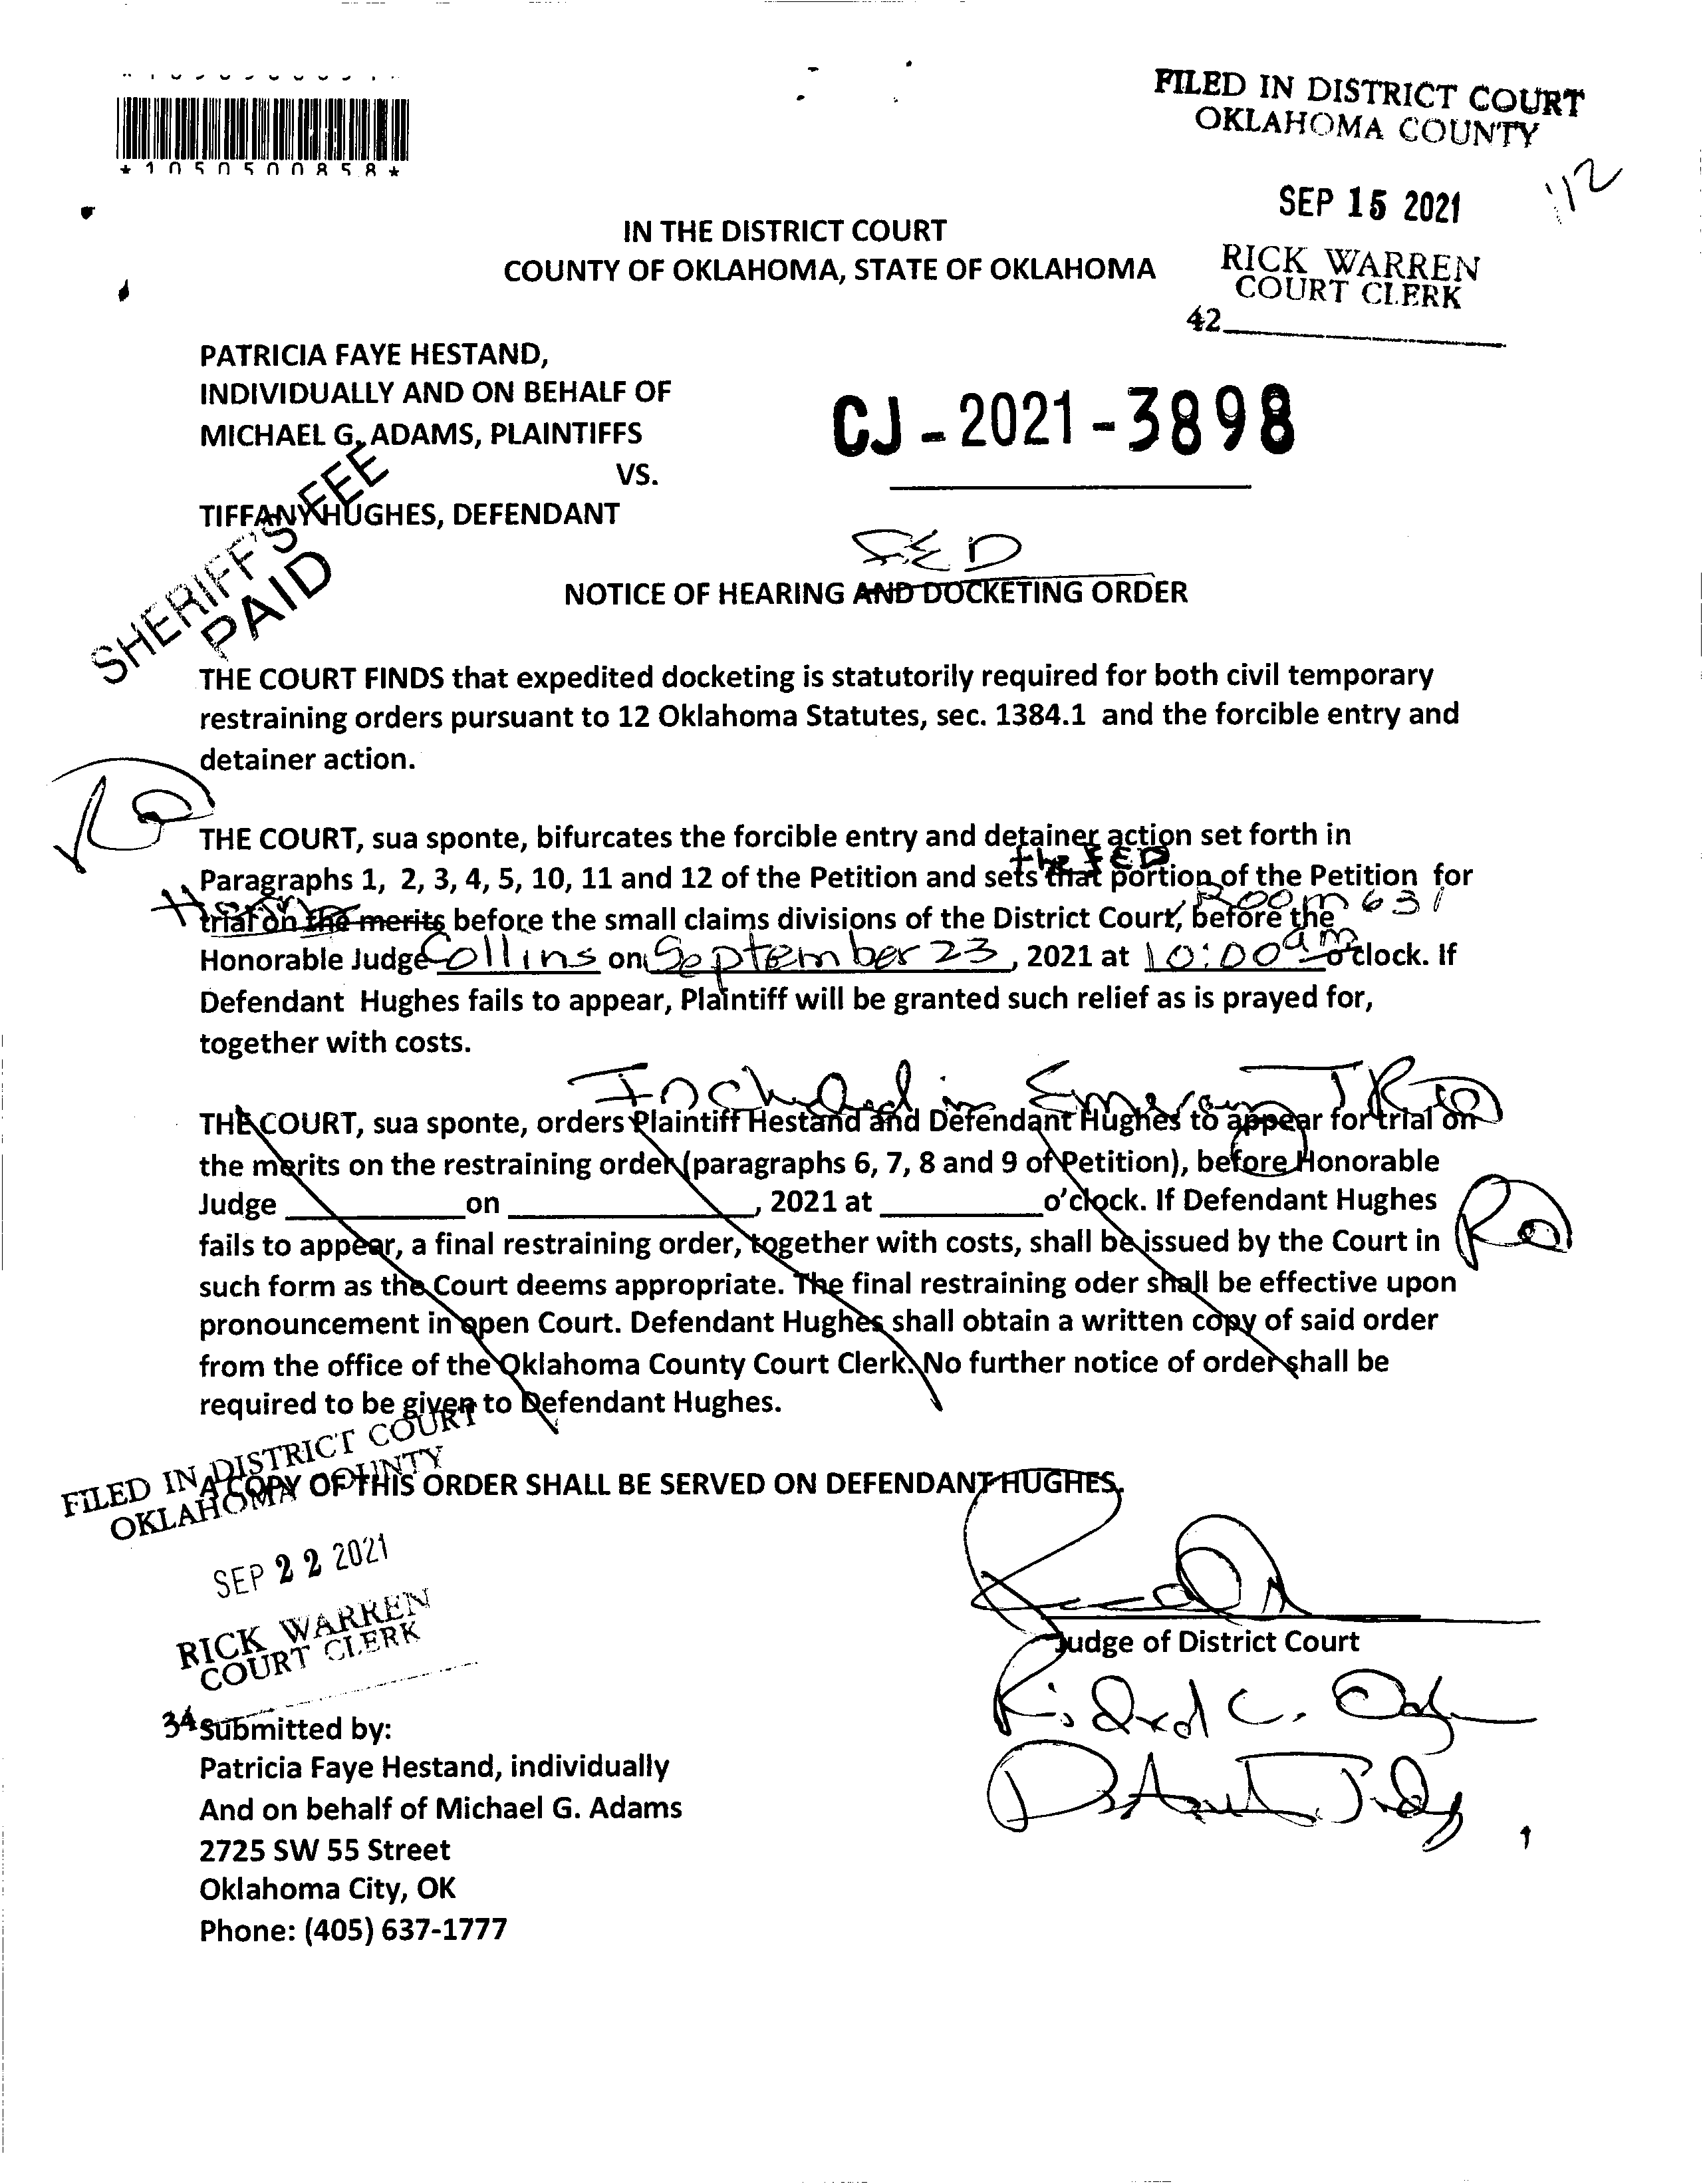 *1050500858*
FILED IN DISTRICT COURT
OKLAHOMA COUNTY
SEP 15 2021
112
RICK WARREN
COURT CLERK
42
IN THE DISTRICT COURT
COUNTY OF OKLAHOMA, STATE OF OKLAHOMA
PATRICIA FAYE HESTAND,
INDIVIDUALLY AND ON BEHALF OF
MICHAEL G. ADAMS, PLAINTIFFS
VS.
TIFFANY HUGHES, DEFENDANT
CJ-2021-3898
SHERIFF'S FEE
PAID
FED
NOTICE OF HEARING AND DOCKETING ORDER
THE COURT FINDS that expedited docketing is statutorily required for both civil temporary
restraining orders pursuant to 12 Oklahoma Statutes, sec. 1384.1 and the forcible entry and
detainer action.
THE COURT, sua sponte, bifurcates the forcible entry and detainer action set forth in
the FED
Paragraphs 1, 2, 3, 4, 5, 10, 11 and 12 of the Petition and sets that portion of the Petition for
Room 631
trial on the merits before the small claims divisions of the District Court, before the
Honorable Judge Collins on September 23, 2021 at 10:00 am o'clock. If
Defendant Hughes fails to appear, Plaintiff will be granted such relief as is prayed for,
together with costs.
Included in Emergency TRO
THE COURT, sua sponte, orders Plaintiff Hestand and Defendant Hughes to appear for trial on
the merits on the restraining order (paragraphs 6, 7, 8 and 9 of Petition), before Honorable
Judge on , 2021 at o'clock. If Defendant Hughes
fails to appear, a final restraining order, together with costs, shall be issued by the Court in
such form as the Court deems appropriate. The final restraining oder shall be effective upon
pronouncement in open Court. Defendant Hughes shall obtain a written copy of said order
from the office of the Oklahoma County Court Clerk. No further notice of order shall be
required to be given to Defendant Hughes.
FILED IN DISTRICT COURT
OKLAHOMA COUNTY
A COPY OF THIS ORDER SHALL BE SERVED ON DEFENDANT HUGHES.
SEP 22 2021
RICK WARREN
COURT CLERK
34
Judge of District Court
Submitted by:
Patricia Faye Hestand, individually
And on behalf of Michael G. Adams
2725 SW 55 Street
Oklahoma City, OK
Phone: (405) 637-1777